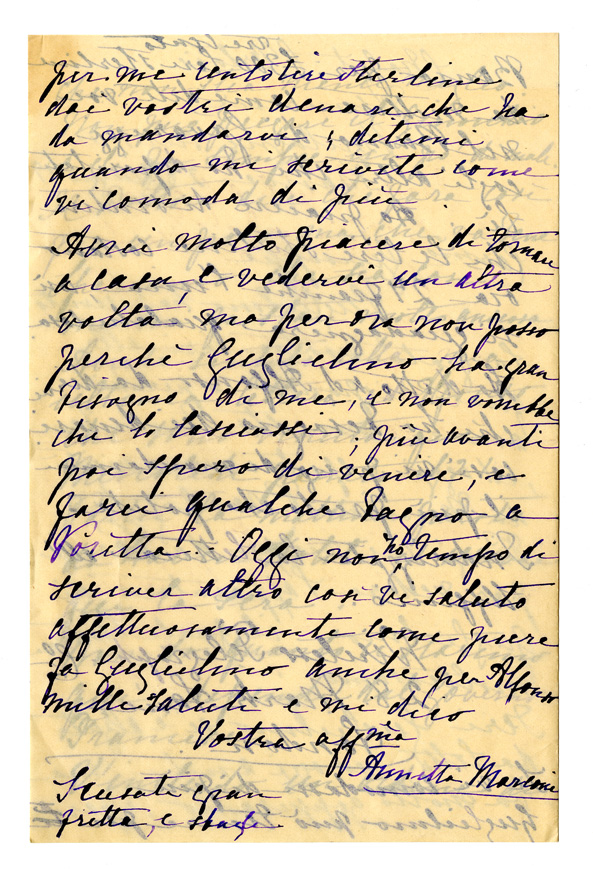 per me cento lire sterline
dai vostri denari che ha
da mandarvi; ditemi
quando mi scrivete come
vi comoda di più
Avrei molto piacere di tornare
a casa, e vedervi un altra
volta ma per ora non posso
perchè Guglielmo ha gran
bisogno di me, e non vorrebbe
che lo lasciassi; più avanti
poi spero di venire, e
farei qualche bagno a
Poretta. Oggi non ho tempo di
scriver altro così vi saluto
affettuosamente come pure
fa Guglielmo anche per Alfonso
mille saluti e mi dico
Vostra affma
Annetta Marconi
Scusate gran
fretta, e sbagli.